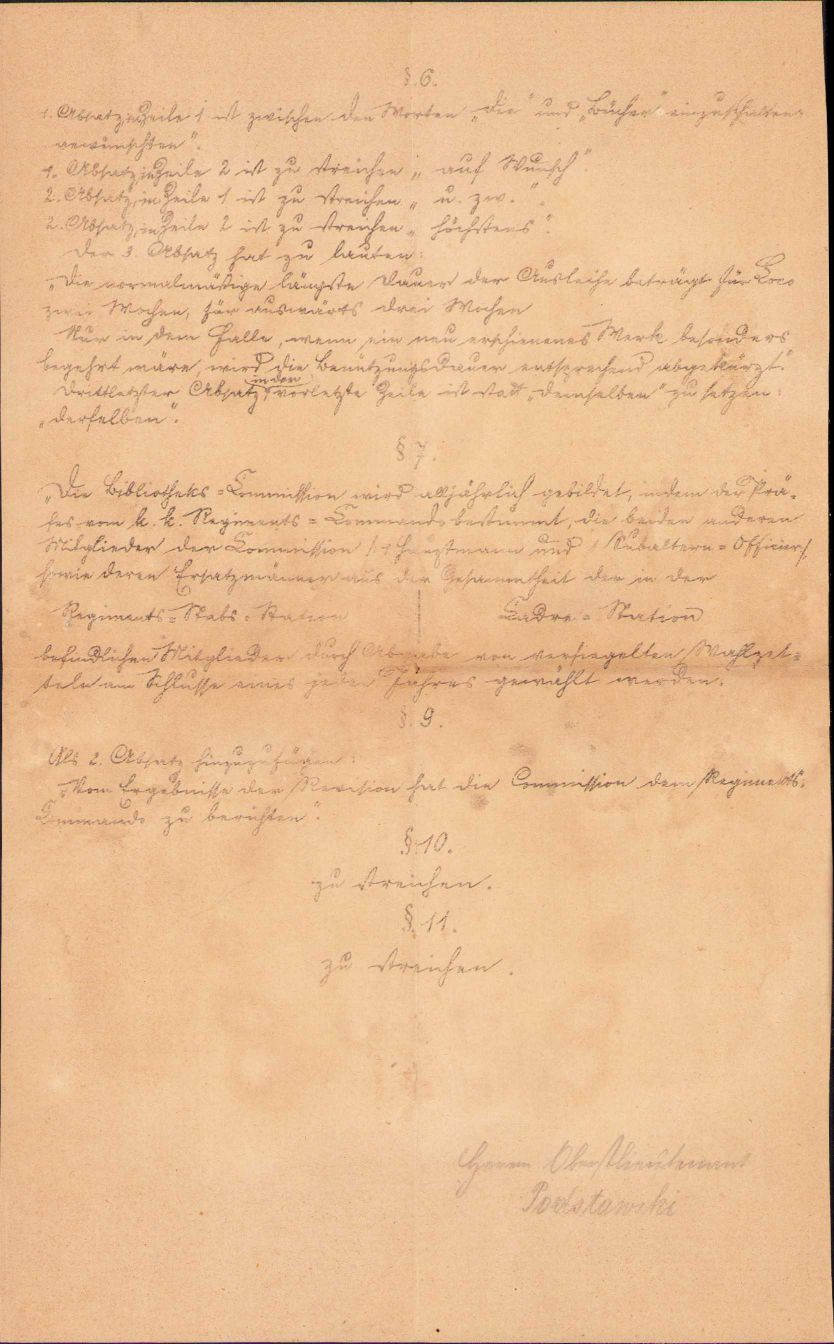 §. 6.
1. Absatz, Zeile 1 ist zwischen den Worten „die" und „Bücher" einzuschalten „
gewünschten".
1. Absatz, in Zeile 2 ist zu streichen „auf Wunsch".
2. Absatz, in Zeile 1 ist zu streichen „u. zw.".
2. Absatz, in Zeile 2 ist zu streichen „höchstens".
Der 3. Absatz hat zu lauten:
„Die normalmäßige längste Dauer der Ausleihe beträgt für Loco
zwei Wochen, für auswärts drei Wochen
Nur in dem Falle, wenn ein neu erschienenes Werk besonders
begehrt wäre, wird die Benützungsdauer entsprechend abgekürzt."
Drittletzter Absatz, in der vorletzte Zeile ist statt „demselben" zu setzen:
„derselben".
§ 7.
„Die Bibliotheks-Commission wird alljährlich gebildet, indem der Prä-
ses vom k. k. Regiments-Commando bestimmt, die beiden anderen
Mitglieder der Commission /: 1 Hauptmann und 1 Subaltern-Officier :/
sowie deren Ersatzmänner aus der Gesammtheit der in der
Regiments-Stabs-Station | Cadre-Station
befindlichen Mitglieder durch Abgabe von versiegelten Wahlzet-
teln am Schlusse eines jeden Jahres gewählt werden.
§. 9.
Als 2. Absatz hinzuzufügen:
„Vom Ergebnisse der Revision hat die Commission dem Regiments-
Commando zu berichten".
§. 10.
zu streichen.
§. 11.
zu streichen.
Herrn Oberstlieutenant
Podstawski